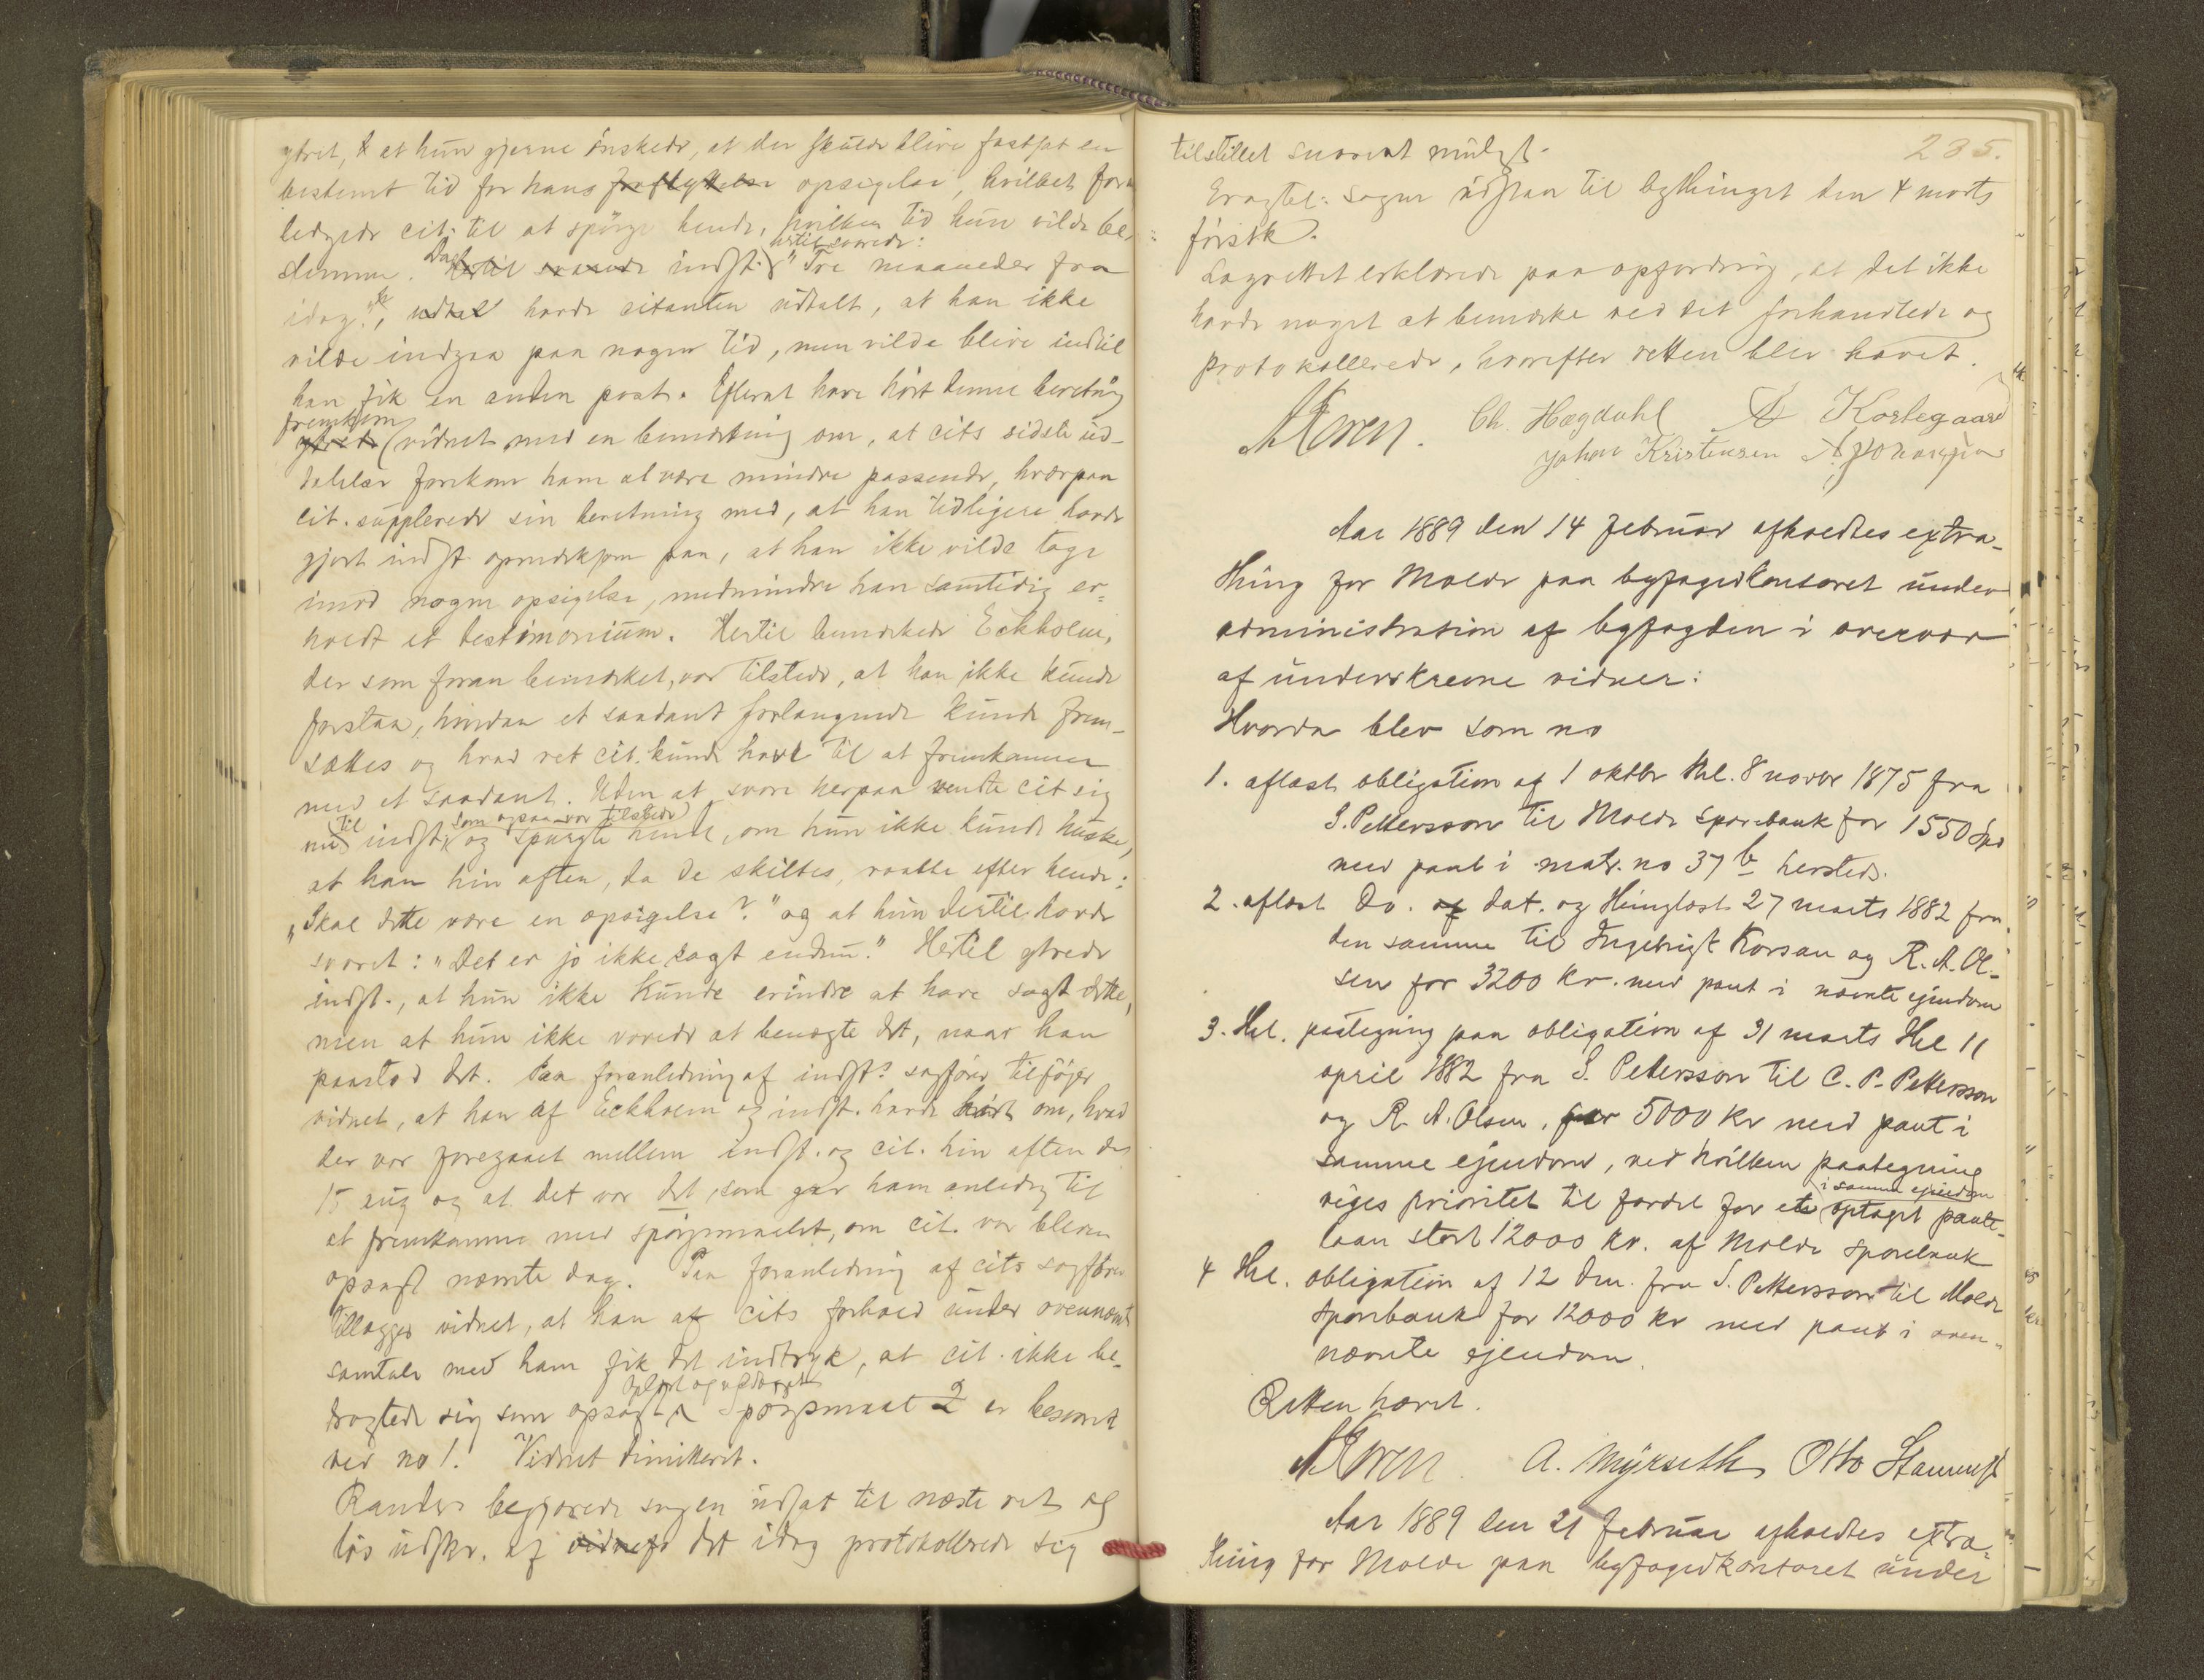 ytret, at hun gjerne ønskede, at der skulde blive fastsat en
bestemt tid for hans opsigelse, hvilket foran
ledigede cit. til at spörge hende, hvilken tid hun vilde be-
stemme. Da hertil svarede indst. hertil svarede: "Tre maaneder fra
idag", havde citanten udtalt, at han ikke
vilde indgaa paa nogen tid, men vilde blive indtil
han fik en anden post. Efterat have hört denne beretning
fremkom vidnet med en bemerkning om, at cits sidste ud-
talelser forekom ham at være mindre passende, hvorpaa
cit. supplerede sin beretning med, at han tidligere havde
gjort indst. opmerksom paa, at han ikke vilde tage
imod nogen opsigelse, medmindre han samtidig er-
holdt et testimonium. Hertil bemerkede Eckholm,
der som foran bemerket, var tilstede, at han ikke kunde
forstaa, hvordan et saadant forlangende kunde frem-
sættes og hvad ret cit. kunde have til at fremkomme
med et saadant. Uden at svare herpaa vendte cit sig
nu til indst. som ogsaa var tilstede og spurgte hende, om hun ikke kunde huske,
at han hin aften, da de skiltes, raabte efter hende:
"Skal dette være en opsigelse?" og at hun dertil havde
svaret: "Det er jo ikke sagt endnu." Hertil ytrede
indst., at hun ikke kunde erindre at have sagt dette,
men at hun ikke vovede at benegte det, naar han
paastod det. Paa foranledning af indst.s sagförer tilföjer
vidnet, at han af Eckholm og indst. havde hört om, hvad
der var foregaaet mellem indst. og cit. hin aften den
15 aug og at det var det, som gav ham anledng til
at fremkomme med spörgsmaalet, om cit. var bleven
opsagt nævnte dag. Paa foranledning af cits sagförer
tillægger vidnet, at han af cits forhold under ovennævnte
samtale med ham fik det indtryk, at cit. ikke be-
tragtede sig som opsagt. Oplæst og vedtaget Spörgsmaal 2 er besvaret
ved no 1. Vidnet dimitteret.
Randers begjærede sagen udsat til næste ret og
lös udskr. af det idag protokollerede sig
235.
tilstillet snarest muligt.
Eragtet: sagen udstaar til bythinget den 4 marts
förstk.
Lagrettet erklærede paa opfordring, at det ikke
havde noget at bemerke ved det forhandlede og
protokollerede, hvorefter retten blev hævet.
Ch. Hægdahl Kortegaard
Johan Kristensen
Aar 1889 den 14 februar afholdtes extra-
thing for Molde paa byfogedkontoret under
administration af byfogden i overvær
af underskrevne vidner:
Hvorda blev som no
1. aflæst obligation af 1 oktbr thl. 8 novbr 1875 fra
S. Pettersson til Molde sparebank for 1550 Spd
med pant i matr. no 37 b hersteds.
2. aflæst Do. af dat. og thinglæst 27 marts 1882 fra
den samme til Ingebrigt Korsan og R. A. Ol-
sen for 3200 kr. med pant i nævnte ejendom
3. thl. paategning paa obligation af 31 marts thl 11
april 1882 fra S. Pettersson til C. P. Pettersson
og R. A. Olsen, for 5000 kr med pant i
samme ejendom, ved hvilken paategning
viges prioritet til fordel for et i samme ejendom optaget pante-
laan stort 12000 kr. af Molde sparebank
4 thl. obligation af 12 dm. fra S. Pettersson til Molde
sparebank for 12000 kr med pant i oven-
nævnte ejendom.
Retten hævet.
A. Myrseth Otto
Aar 1889 den 21 februar afholdtes extra-
thing for Molde paa byfogedkontoret under